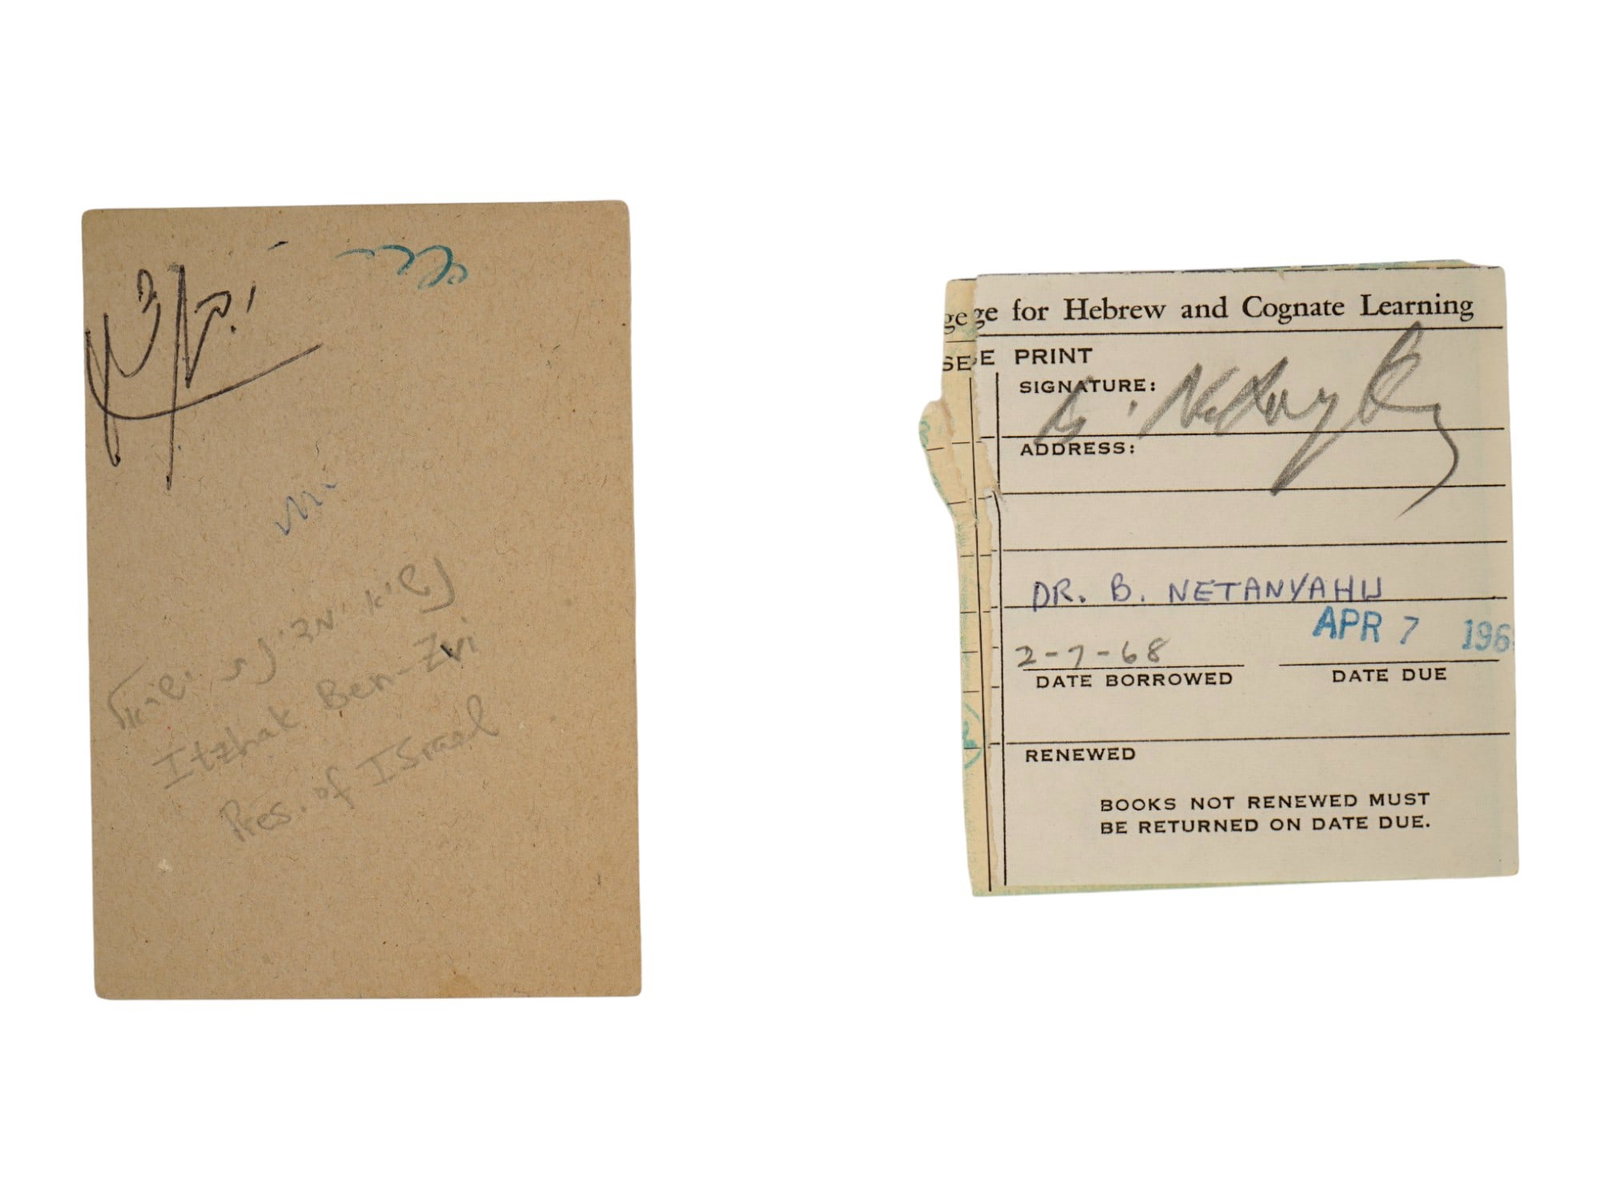 נשיא מדינת ישראל
Itzhak Ben-Zvi
Pres. of ISrael
ge ge for Hebrew and Cognate Learning
SE E PRINT
SIGNATURE:
B. Netanyahu
ADDRESS:
DR. B. NETANYAHU
APR 7 196
2-7-68
DATE BORROWED DATE DUE
RENEWED
BOOKS NOT RENEWED MUST
BE RETURNED ON DATE DUE.